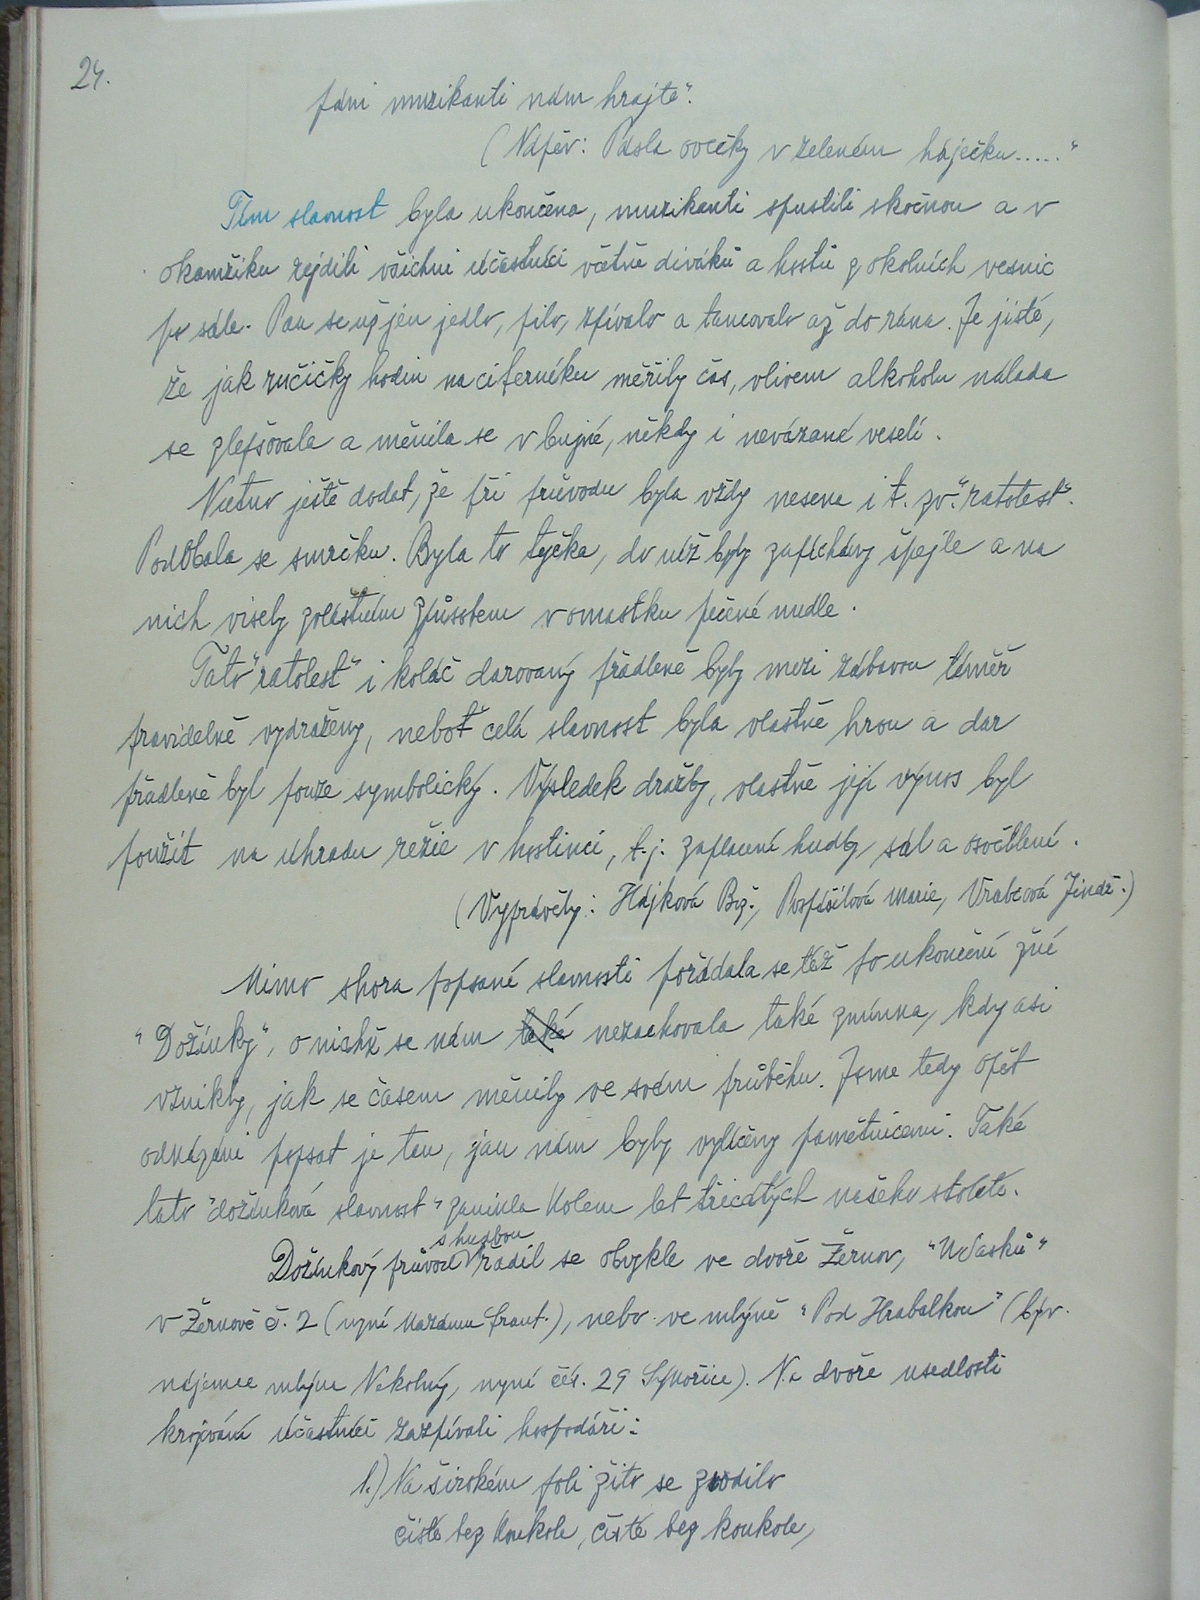 24.
páni muzikanti nám hrajte".
(Nápěv: Pásla ovečky v zeleném háječku....."
Tím slavnost byla ukončena, muzikanti spustili skočnou a v
okamžiku rejdili všichni účastníci včetně diváků a hostů z okolních vesnic
po sále. Pak se už jen jedlo, pilo, zpívalo a tancovalo až do rána. Je jisté,
že jak ručičky hodin na ciferníku měřily čas, vlivem alkoholu nálada
se zlepšovala a měnila se v bujné, někdy i nevázané veselí.
Nutno ještě dodat, že při průvodu byla vždy nesena i t. zv. "ratolest".
Podobala se smrčku. Byla to tyčka, do níž byly zapíchány špejle a na
nich visely zvláštním způsobem v omastku pečené nudle.
Tato "ratolest" i koláč darovaný přadleně byly mezi zábavou téměř
pravidelně vydraženy, neboť celá slavnost byla vlastně hrou a dar
přadleně byl pouze symbolický. Výsledek dražby, vlastně její výnos byl
použit na úhradu režie v hostinci, t.j. zaplacení hudby, sál a osvětlení.
(Vyprávěly: Hájková Bož., Pospíšilová Marie, Vrabcová Jindř.)
Mimo shora popsané slavnosti pořádala se též po ukončení žní
"Dožínky", o nichž se nám také nezachovala také zmínka, kdy asi
vznikly, jak se časem měnily ve svém průběhu. Jsme tedy opět
odkázáni popsat je tak, jak nám byly vylíčeny pamětnicemi. Také
tato "dožínková slavnost" zanikla kolem let třicátých našeho století.
s hudbou
Dožínkový průvod řadil se obvykle ve dvoře Žernov, "U Vašků"
v Žernově č. 2 (nyní Frant.), nebo ve mlýně "Pod Hrabalkou" (býv.
nájemce mlýna Nekolný, nyní čís. 29 Sýkořice). Na dvoře usedlosti
krojovaní účastníci zazpívali hospodáři:
1.) Na širokém poli žito se zrodilo
čisté bez koukole, čisté bez koukole,